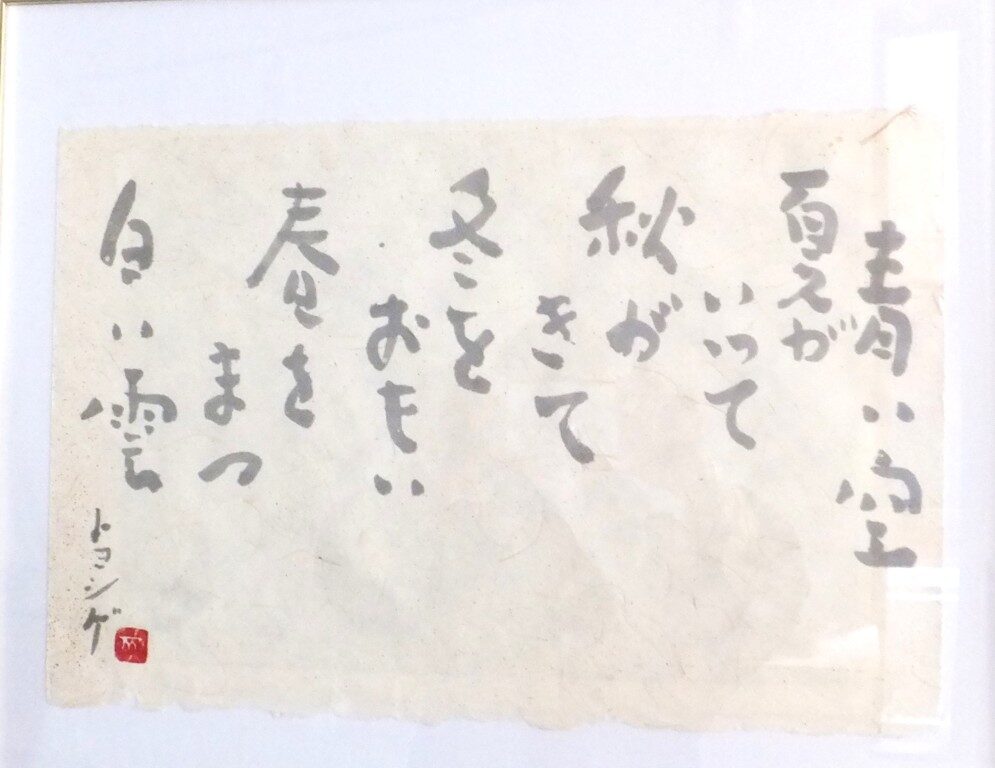 青い空
夏が
いって
秋が
きて
冬を
おもい
春を
まつ
白い雲
トヨシゲ